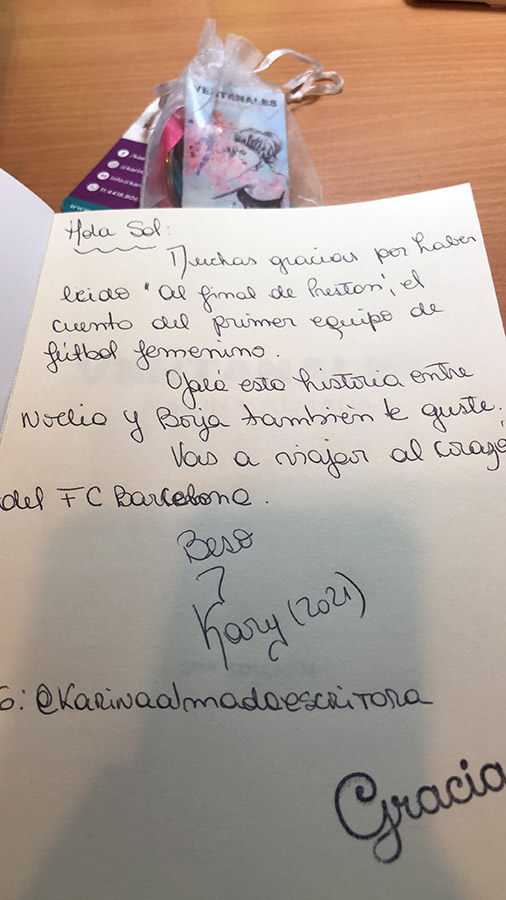 VENTANALES
Hola Sol:
Muchas gracias por haber
leido "Al final de Preston", el
cuento del primer equipo de
fútbol femenino.
Ojalá esta historia entre
Noelia y Borja también te guste.
Vas a viajar al corazó
del FC Barcelona.
Beso
Kary (2021)
G: @Karinaalmadaescritora
Gracia